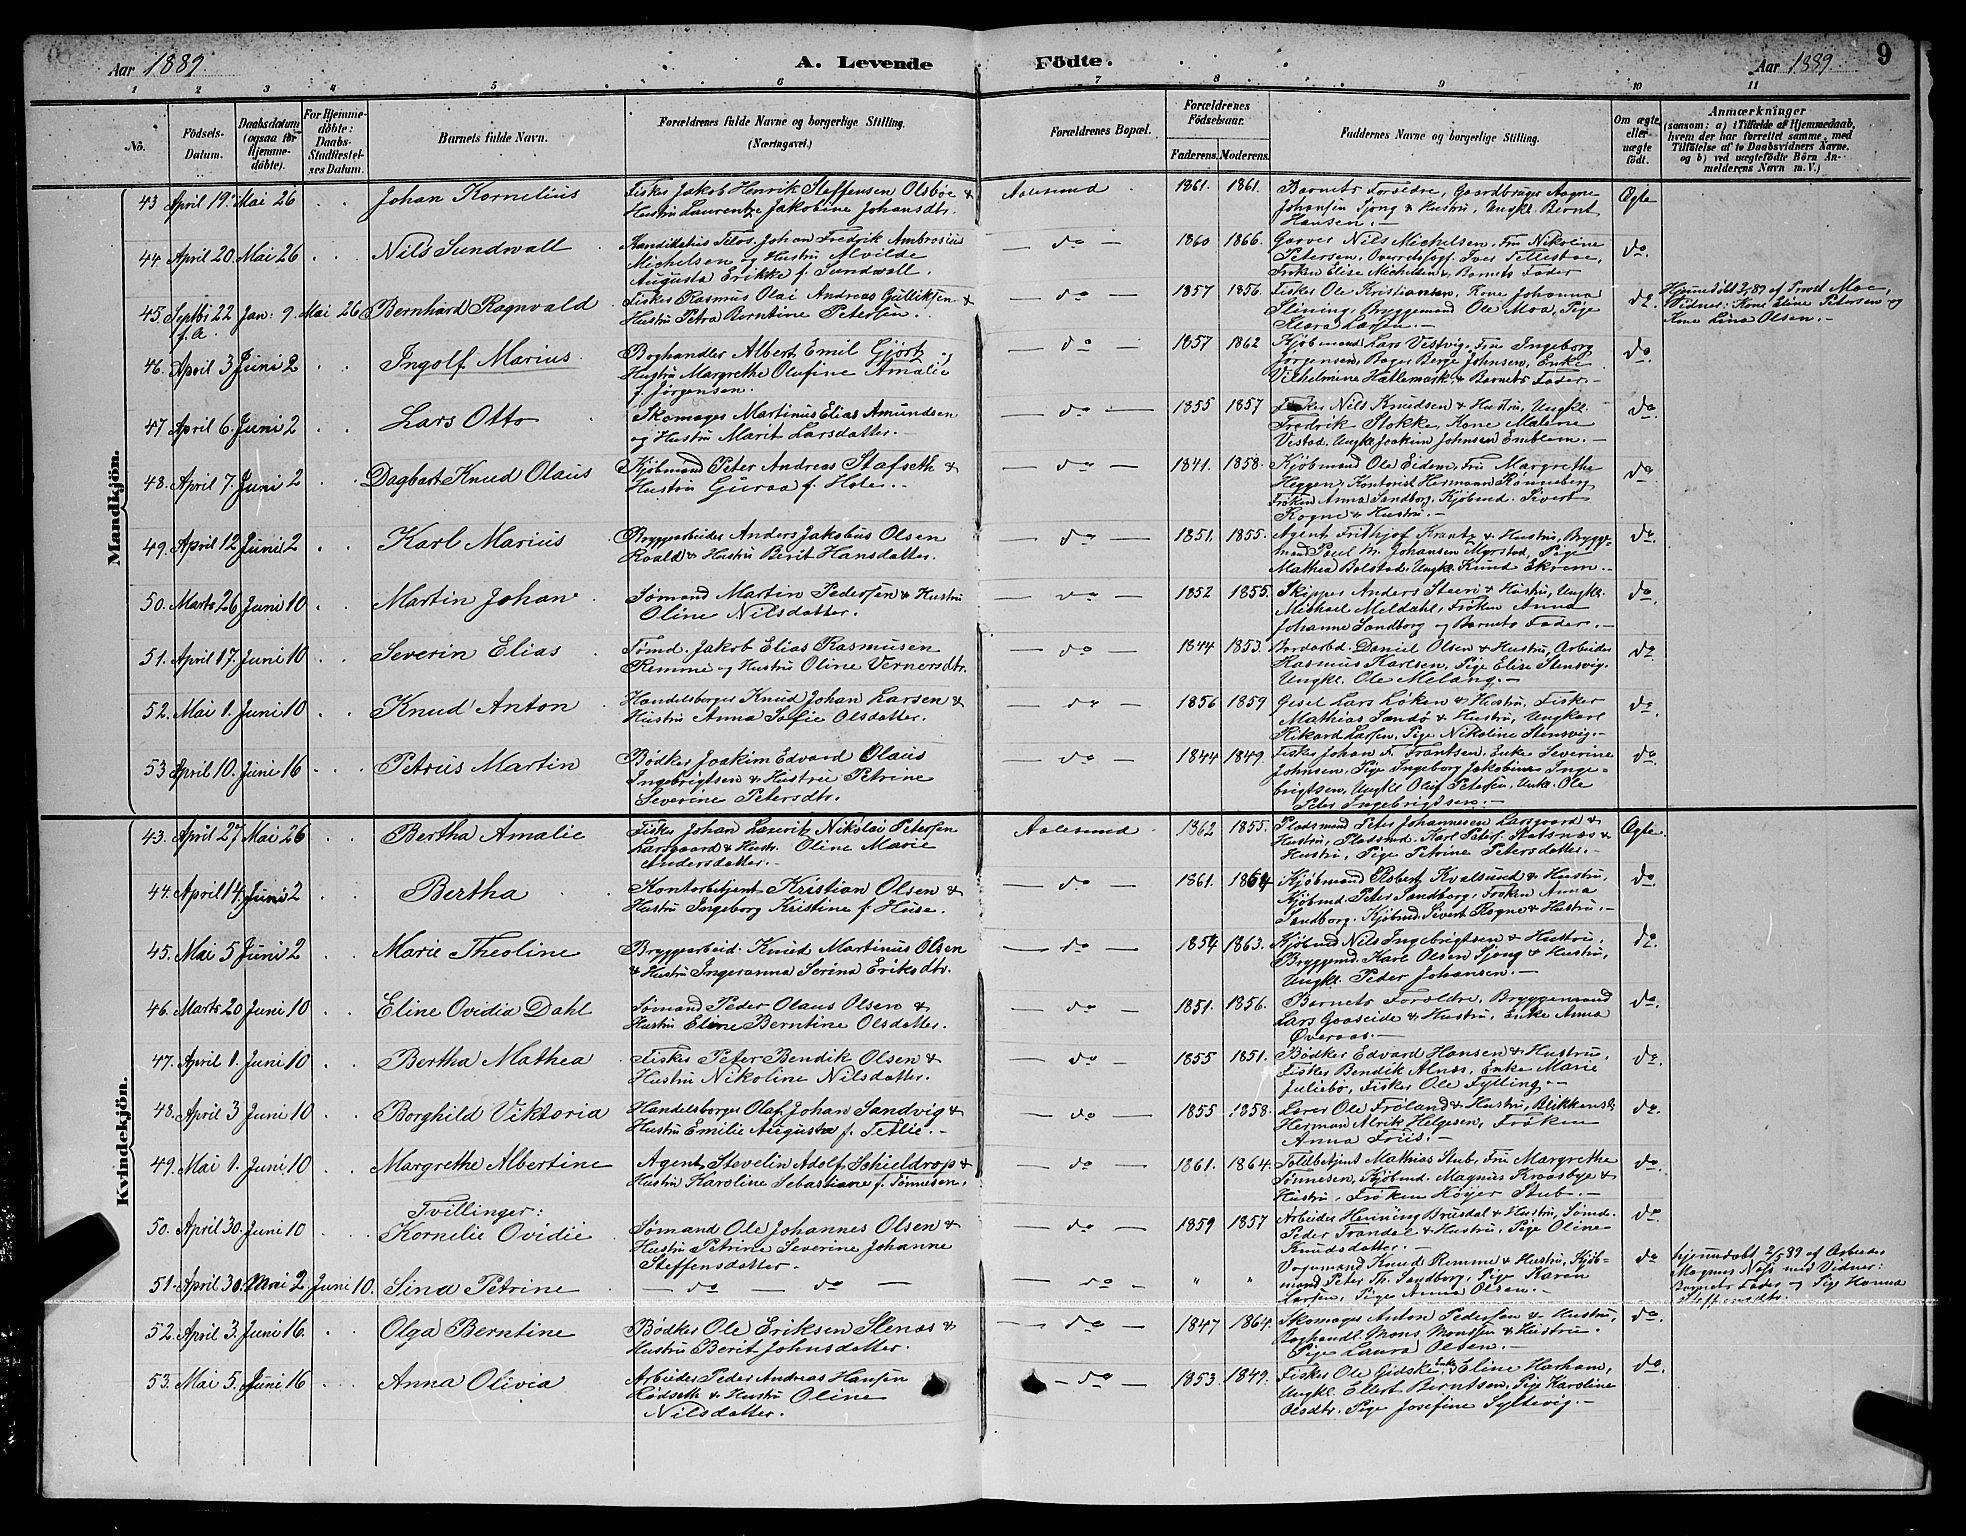 Aar 1889
A. Levende Födte.
Aar 1889.
9
1 2 3 4 5 6 7 8 9 10 11
No.
Födsels-Datum.
Daabsdatum (ogsaa for Hjemme-döbte).
For Hjemme-döbte: Daabs-Stadfæstel-ses Datum.
Barnets fulde Navn.
Forældrenes fulde Navne og borgerlige Stilling. (Næringsvei.)
Forældrenes Bopæl.
Forældrenes Födselsaar. Faderens. Moderens.
Faddernes Navne og borgerlige Stilling.
Om ægte eller uægte födt.
Anmærkninger
(saasom: a) i Tilfælde af Hjemmedaab, hvem der har forrettet samme, med Tilföielse af to Daabsvidners Navne. og b) ved uægtefödte Börn An-melderens Navn m. V.)
Mandkjön.
43 April 19. Mai 26 Johan Kornelius Fisker Jakob Henrik Steffensen Olsböe & Aalesund 1861. 1861. Barnets Forældre, Gaardbruger Aagne Ægte
Hustru Laurentze Jakobine Johansdtr. Johansen Sjong & Hustru, Ungkl. Bernt
Hansen.
44. April 20. Mai 26 Nils Sundwall Kandidatus Filos. Johan Fredrik Ambrosius do 1860 1866. Garver Nils Michelsen, Fru Nikoline do.
Michelsen og Hustru Alvilde Petersen, Overretssagf. Iver Tillestøe,
Augusta Erikke f. Sundwall. Frøken Elise Michelsen & Barnets Fader
45. Septbr 22 f.A. Jan: 9. Mai 26 Bernhard Ragnvald Fisker Rasmus Olai Andreas Gulliksen & do 1857 1856. Fisker Ole Kristiansen, Kone Johanna do. Hjemmedöbt 2/89 af Provst Moe,
Hustru Petra Berntine Petersen. Slining, Bryggemand Ole Moa, Pige Vidner: Kone Eline Petersen og
Klara Larsen. Kone Lina Olsen.
46. April 3 Juni 2 Ingolf Marius. Boghandler Albert Emil Gjørtz & do 1857 1862 Kjöbmand Lars Vestvig, Fru Ingeborg do
Hustru Margrethe Olufine Amalie Jörgensen, Bager Berge Johnsen, Enke
f. Jörgensen. Vilhelmine Hatlemark & Barnets Fader.
47 April 6. Juni 2 Lars Otto Skomager Martinus Elias Amundsen do 1855 1857 Fisker Nils Knudsen & Hustru, Ungkl. do.
og Hustru Marit Larsdatter. Fredrik Stokke, Kone Malene
Vestad, Ungkl. Joakim Johnsen Emblem.
48. April 7. Juni 2 Dagbart Knud Olaus Kjöbmand Peter Andreas Stafseth & do 1841. 1858. Kjöbmand Ole Eidem, Fru Margrethe do
Hustru Guraa f. Hole. Heggen, Kontorist Hermann Rönneberg,
Fröken Anna Sandborg, Kjöbmd. Sivert
Rogne & Hustru.
49. April 12 Juni 2 Karl Marius Bryggearbeider Anders Jakobus Olsen do 1851. 1855. Agent Frithjof Krantz & Hustru, Brygge- do.
Roald & Hustru Berit Hansdatter. mand Paul M. Johansen Myrstad, Pige
Mathea Bolstad, Ungkl. Knud Ekrem.
50. Marts 26 Juni 10 Martin Johan Sømand Martin Pedersen & Hustru do 1852 1855. Skipper Anders Steerö & Hustru, Ungkl. do.
Oline Nilsdatter. Michael Meldahl, Fröken Anna
Johanne Sandborg og Barnets Fader.
51. April 17. Juni 10 Severin Elias Tømd. Jakob Elias Rasmusen do 1844 1853. Bordarbd. Daniel Olsen & Hustru, Arbeider do
Remme og Hustru Oline Vernersdtr. Rasmus Karlsen, Pige Elise Stensvig.
Ungkl. Ole Melang.
52. Mai 1. Juni 10 Knud Anton Handelsborger Knud Johan Larsen & do 1856 1859 Gisel Lars Løken & Hustru, Fisker do.
Hustru Anna Sofie Olsdatter. Mathias Sandö & Hustru, Ungkarl
Rikard Larsen, Pige Nikoline Stensvig.
53 April 10. Juni 16 Petrus Martin Bödker Joakim Edvard Olaus do 1844 1849. Fisker Johan F. Frantsen, Enke Severine do
Ingebrigtsen & Hustru Petrine Johnsen, Pige Ingeborg Jakobine Inge-
Severine Petersdtr. brigtsen, Ungkl. Oluf Petersen, Unkl. Ole
Peter Ingebrigtsen.
Kvindekjön.
43. April 27 Mai 26 Bertha Amalie Fisker Johan Lauritz Nikolai Petersen Aalesund 1862 1855. Pladsmand Peter Johannesen Larsgaard & Ægte
Larsgaard & Hustr. Oline Marie Hustru, Pladsmd. Karl Peters. Slatsnæs &
Andersdatter. Hustru, Pige Petrine Petersdatter.
44. April 14. Juni 2 Bertha Kontorbetjent Kristian Olsen & do 1861. 1864 Kjöbmand Elbert Kvalsund & Hustru, do
Hustru Ingeborg Kristine f. Huse. Kjöbmd. Peter Sandborg, Froken Anna
Sandborg. Kjöbmd. Sivert Rogne & Hustru.
45. Mai 5 Juni 2 Marie Theoline Bryggearbeid. Knud Martinus Olsen do 1854 1863. Kjöbmd Nils Ingebrigtsen & Hustru, do.
& Hustru Ingeranna Serina Eriksdtr. Bryggemd. Karl Olsen Sjong & Hustru,
Ungkl. Peder Johansen.
46. Marts 20 Juni 10 Eline Ovidia Dahl Sømand Peder Olaus Olsen & do 1851. 1856. Barnets Forældre, Bryggemand do
Hustru Eline Berntine Olsdatter. Lars Gaaseide & Hustru, Enke Anna
Overaas.
47. April 1. Juni 10 Bertha Mathea Fisker Peter Bendik Olsen & do 1855 1851. Bödker Edvard Hansen & Hustru, do.
Hustru Nikoline Nilsdatter. Fisker Bendik Alnæs, Enke Marie
Juliebö, Fisker Ole Fylling.
48. April 3 Juni 10 Borghild Viktoria Handelsborger Olaf Johan Sandvig & do 1855 1858. Lærer Ole Fröland & Hustru, Blikkensl. do.
Hustru Emilie Augusta f. Tetlie. Herman Alrik Helgesen, Fröken
Anna Friis.
49. Mai 1. Juni 10 Margrethe Albertine Agent Stevelin Adolf Schieldrop & do 1861. 1864. Toldbetjent Mathias Stub, Fru Margrethe do.
Hustru Karoline Sebastiane f. Tönnesen. Tönnesen, Kjöbmd. Magnus Kraasbye &
Hustru, Fröken Höyer Stub.
Tvillinger:
50. April 30. Juni 10 Kornelie Ovidie Sømand Ole Johannes Olsen & do 1859 1857 Arbeider Henning Brusdal & Hustru, Sømd. do
Hustru Petrine Severine Johanne Peder Trandal & Hustru, Pige Oline
Steffensdatter. Knudsdatter.
51. April 30. Mai 2. Juni 10. Sina Petrine do do do " " Vognmand Knud Remme & Hustru, Kjöb- do hjemmedøbt 2/5 89 af Arbeider
mand Peter Th. Sandborg, Pige Karen Magnus Næs med Vidner:
Larsen, Pige Anna Olsen. Barnets Fader og Pige Hanna
Steffensdtr.
52. April 3. Juni 16. Olga Berntine Bödker Ole Eriksen Slenæs & do 1847 1864. Skomager Anton Pedersen & Hustru, do
Hustru Berit Johnsdatter. Boghandl. Mons Monssen & Hustru.
Pige Laura Olsen.
53. Mai 5. Juni 16 Anna Olivia Arbeider Peder Andreas Hansen do 1853. 1849. Fisker Ole Gidske, Enke Eline Harham, do
Hustru Oline Ungkl. Ellert Berntsen, Pige Karoline
Nilsdatter. Olsdtr. Pige Josefine Syltevig.